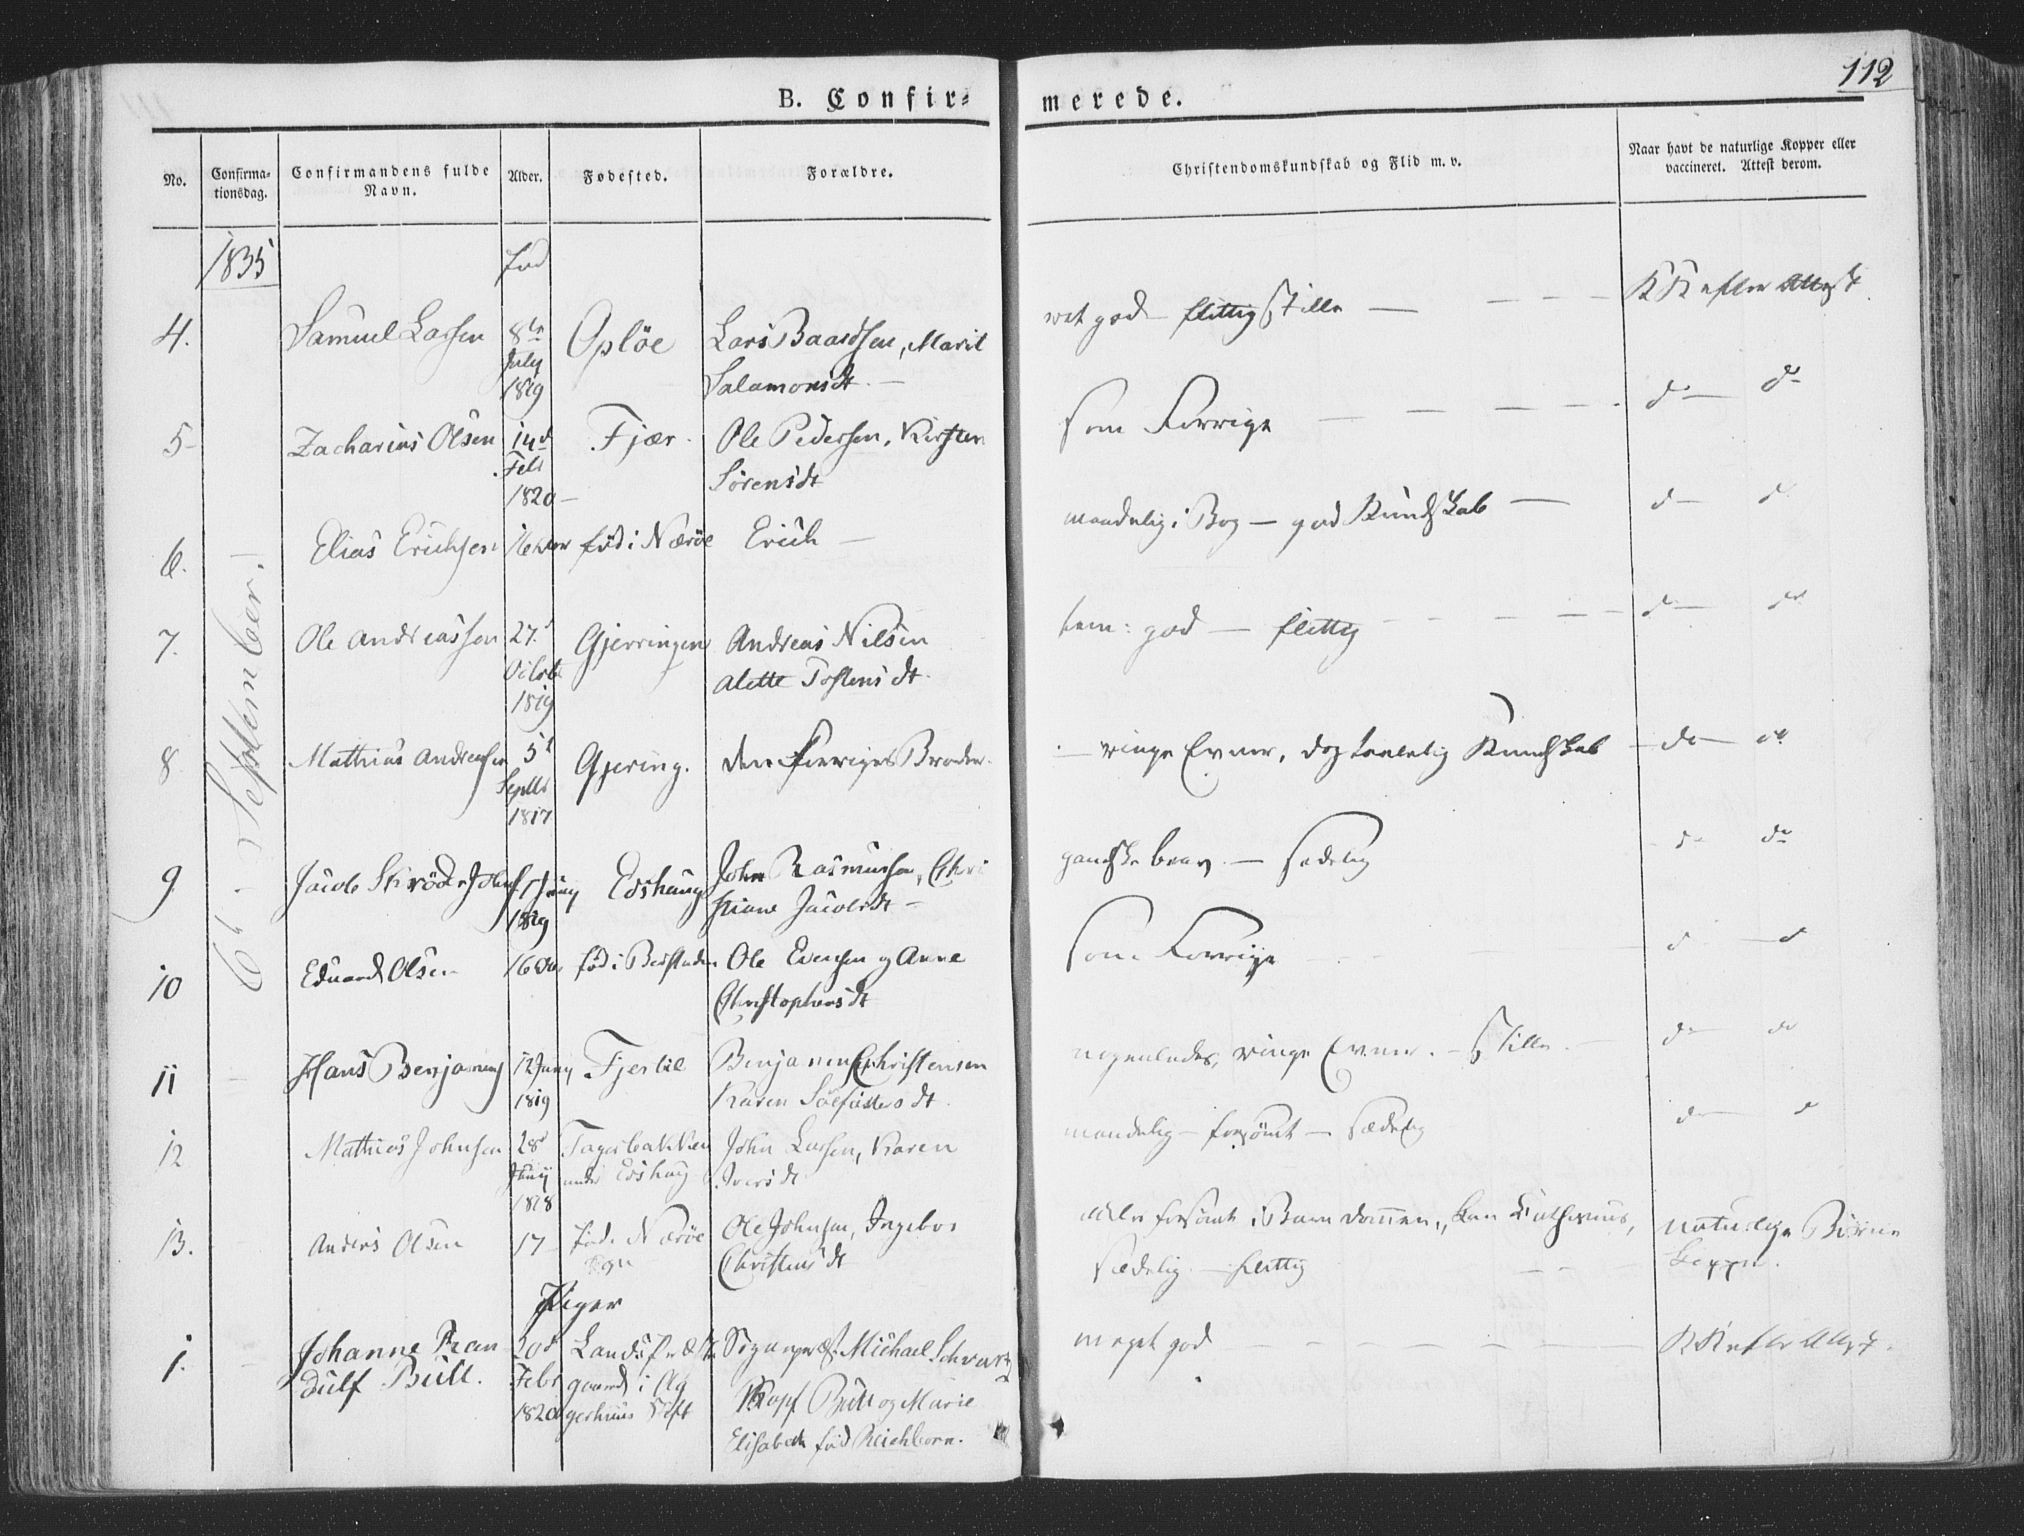 112
B. Confir=
merede.
No.
Confirma-
tionsdag.
Confirmandens fulde
Navn.
Alder.
Fødested.
Forældre.
Christendomskundskab og Flid m. v.
Naar havt de naturlige Kopper eller
vaccineret. Attest derom.
1835
fød
6 September
4.
Samuel Larsen
8de
July
1819
Opløe
Lars Baardsen, Marit
Salamonsdt. —
ret god — flittig Stille —
KK efter Attest
5
Zacharias Olsen
14d
Feb
1820 —
Fjær
Ole Pedersen, Kirsten
Sørensdt
som Forrige
do — do
6.
Elias Erichsen
16
fød i Nærøe
Erich —
maadelig i Bog — god Kundskab —
d — d
7.
Ole Andreassen
27d
Octobr
1819
Gjerringen
Andreas Nilsen
Alette Tostensdt.
tem: god — flittig
d — do
8
Mathias Andreasen
5t
Septbr
1817
Gjering.
den Forriges Broder.
— ringe Evner, dog taalelig Kundskab
do — do
9
Jacob Skrøder Johns
Juny
1819
Edshaug
John Rasmussen, Chri
stiane Jacobsdt —
ganske brav — sædelig
do do
10
Eduard Olsen
16
fød i
Ole Evensen og Anne
Christophersdt
som Forrige
d — d
11
Hans Benjamins
12 Juny
1819
Benjamin Christensen
Karen dt.
nogenledes, ringe Evner. — Stille —
do do
12
Mathias Johnsen
28d
Juny
1818
Fagerbakken
under Edshaug
John Larsen, Karen
Iversdt
maadelig — forsømt — sædelig
d — d
13.
Anders Olsen
17
fød i Nærøe
Ole Johnsen, Ingebor
Christensdt
forsømt i Barndommen, kan
sædelig — flittig
naturlige Børne
kopper.
Piger
1.
Johanne Ran
dulf Bull.
20d
Febr
1820
gaard i Ag
gerhuus Stift
Sognepræst Michael Schvartz
Kopf Bull og Marie
Elisabeth fød Reichborn.
meget god
KK efter Attest.